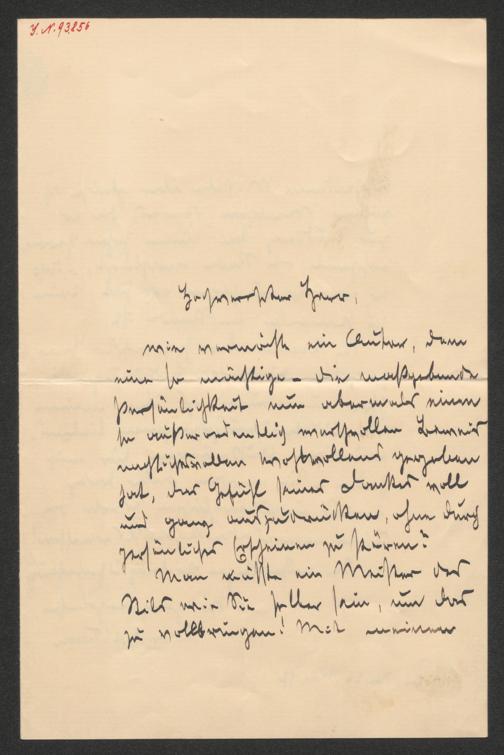 J. N. 93.856
Hochverehrter Herr,
wie vermöchte ein Autor, dem
eine so mächtige – die maßgebende
Persönlichkeit nun abermals einen
so außerordentlich wertvollen Beweis
nachsichtsvollen Wohlwollens gegeben
hat, das Gefühl seines Dankes voll
und ganz auszudrücken, ohne durch
persönliches Erscheinen zu stören?
Man müßte ein Meister des
Stils wie Sie selber sein, um das
zu vollbringen! Mit meinen